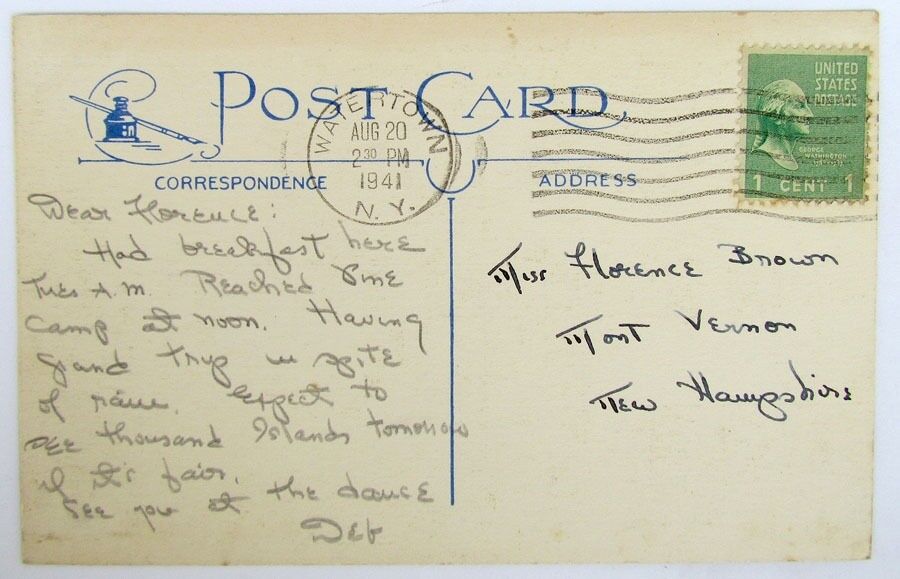 POST CARD
WATERTOWN
AUG 20
2 30 PM
1941
N. Y.
UNITED
STATES
POSTAGE
GEORGE
WASHINGTON
1 CENT 1
CORRESPONDENCE
ADDRESS
Dear Florence:
Had breakfast here
Tues A.M. Reached Pine
Camp at noon. Having
grand trip in spite
of rain. Expect to
see thousand Islands tomorrow
if it's fair.
See you at the dance
Deb
Miss Florence Brown
Mont Vernon
New Hampshire